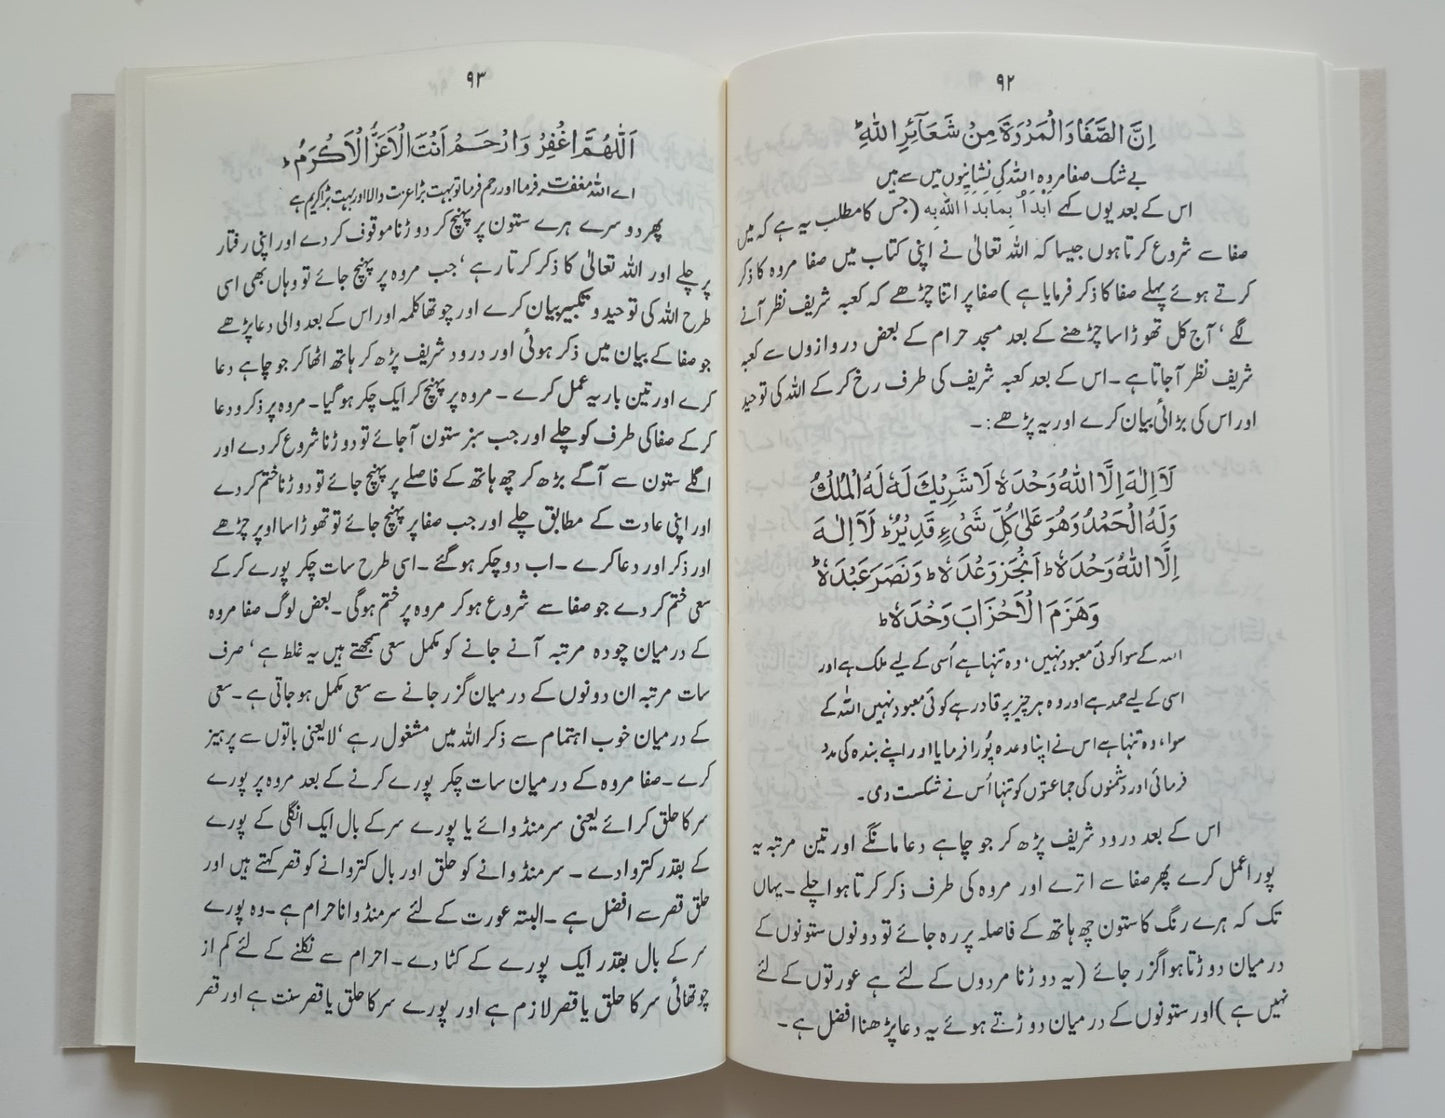 ۹۲
اِنَّ الصَّفَا وَ الْمَرْوَةَ مِنْ شَعَآئِرِ اللّٰهِ ؕ
بے شک صفا مروہ اللہ کی نشانیوں میں سے ہیں
اس کے بعد یوں کہے اَبْدَأُ بِمَا بَدَأَ اللّٰهُ بِهٖ (جس کا مطلب یہ ہے کہ میں
صفا سے شروع کرتا ہوں جیسا کہ اللہ تعالیٰ نے اپنی کتاب میں صفا مروہ کا ذکر
کرتے ہوئے پہلے صفا کا ذکر فرمایا ہے) صفا پر اتنا چڑھے کہ کعبہ شریف نظر آنے
لگے ‘ آج کل تھوڑا سا چڑھنے کے بعد مسجد حرام کے بعض دروازوں سے کعبہ
شریف نظر آ جاتا ہے۔ اس کے بعد کعبہ شریف کی طرف رخ کر کے اللہ کی توحید
اور اس کی بڑائی بیان کرے اور یہ پڑھے:۔
لَآ اِلٰهَ اِلَّا اللّٰهُ وَحْدَهٗ لَا شَرِيْكَ لَهٗ لَهُ الْمُلْكُ
وَلَهُ الْحَمْدُ وَهُوَ عَلٰى كُلِّ شَىْءٍ قَدِيْرٌ ؕ لَآ اِلٰهَ
اِلَّا اللّٰهُ وَحْدَهٗ ؕ اَنْجَزَ وَعْدَهٗ ؕ وَنَصَرَ عَبْدَهٗ ؕ
وَهَزَمَ الْاَحْزَابَ وَحْدَهٗ ؕ
اللہ کے سوا کوئی معبود نہیں، وہ تنہا ہے اُسی کے لیے ملک ہے اور
اسی کے لیے حمد ہے اور وہ ہر چیز پر قادر ہے کوئی معبود نہیں اللہ کے
سوا، وہ تنہا ہے اس نے اپنا وعدہ پُورا فرمایا اور اپنے بندہ کی مدد
فرمائی اور دشمنوں کی جماعتوں کو تنہا اُس نے شکست دی۔
اس کے بعد درود شریف پڑھ کر جو چاہے دعا مانگے اور تین مرتبہ یہ
پورا عمل کرے پھر صفا سے اترے اور مروہ کی طرف ذکر کرتا ہوا چلے۔ یہاں
تک کہ ہرے رنگ کا ستون چھ ہاتھ کے فاصلہ پر رہ جائے تو دونوں ستونوں کے
درمیان دوڑتا ہوا گزر جائے (یہ دوڑنا مردوں کے لئے ہے عورتوں کے لئے
نہیں ہے) اور ستونوں کے درمیان دوڑتے ہوئے یہ دعا پڑھنا افضل ہے۔
۹۳
اَللّٰهُمَّ اغْفِرْ وَارْحَمْ اَنْتَ الْاَعَزُّ الْاَكْرَمُ ؕ
اے اللہ مغفرت فرما اور رحم فرما تو بہت بڑا عزت والا اور بہت بڑا کریم ہے
پھر دوسرے ہرے ستون پر پہنچ کر دوڑنا موقوف کر دے اور اپنی رفتار
پر چلے اور اللہ تعالیٰ کا ذکر کرتا رہے ‘ جب مروہ پر پہنچ جائے تو وہاں بھی اسی
طرح اللہ کی توحید و تکبیر بیان کرے اور چوتھا کلمہ اور اس کے بعد والی دعا پڑھے
جو صفا کے بیان میں ذکر ہوئی اور درود شریف پڑھ کر ہاتھ اٹھا کر جو چاہے دعا
کرے اور تین بار یہ عمل کرے۔ مروہ پر پہنچ کر ایک چکر ہو گیا۔ مروہ پر ذکر و دعا
کر کے صفا کی طرف کو چلے اور جب سبز ستون آ جائے تو دوڑنا شروع کر دے اور
اگلے ستون سے آگے بڑھ کر چھ ہاتھ کے فاصلے پر پہنچ جائے تو دوڑنا ختم کر دے
اور اپنی عادت کے مطابق چلے اور جب صفا پر پہنچ جائے تو تھوڑا سا اوپر چڑھے
اور ذکر اور دعا کرے۔ اب دو چکر ہو گئے۔ اسی طرح سات چکر پورے کر کے
سعی ختم کر دے جو صفا سے شروع ہو کر مروہ پر ختم ہوگی۔ بعض لوگ صفا مروہ
کے درمیان چودہ مرتبہ آنے جانے کو مکمل سعی سمجھتے ہیں یہ غلط ہے ‘ صرف
سات مرتبہ ان دونوں کے درمیان گزر جانے سے سعی مکمل ہو جاتی ہے۔ سعی
کے درمیان خوب اہتمام سے ذکر اللہ میں مشغول رہے ‘ لایعنی باتوں سے پرہیز
کرے۔ صفا مروہ کے درمیان سات چکر پورے کرنے کے بعد مروہ پر پورے
سر کا حلق کرائے یعنی سر منڈوائے یا پورے سر کے بال ایک انگلی کے پورے
کے بقدر کتروا دے۔ سر منڈوانے کو حلق اور بال کتروانے کو قصر کہتے ہیں اور
حلق قصر سے افضل ہے۔ البتہ عورت کے لئے سر منڈوانا حرام ہے۔ وہ پورے
سر کے بال بقدر ایک پورے کے کٹا دے۔ احرام سے نکلنے کے لئے کم از
چوتھائی سر کا حلق یا قصر لازم ہے اور پورے سر کا حلق یا قصر سنت ہے اور قصر